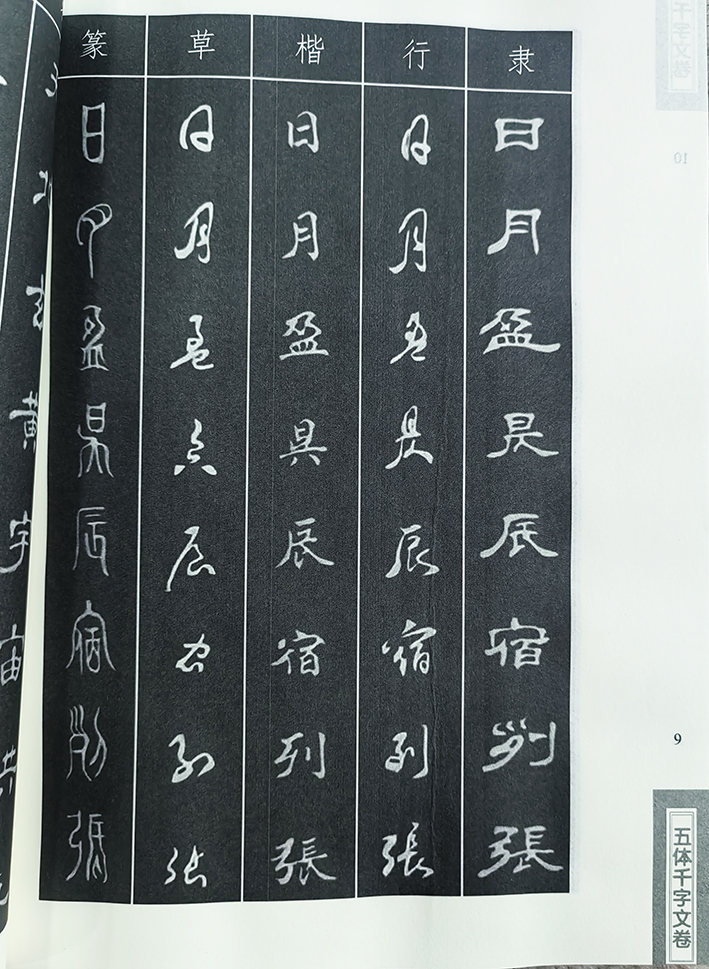 隶日月盈昃辰宿列張
行日月盈昃辰宿列張
楷日月盈昃辰宿列張
草日月盈昃辰宿列張
篆日月盈昃辰宿列張
黄宇宙
9
五体千字文卷